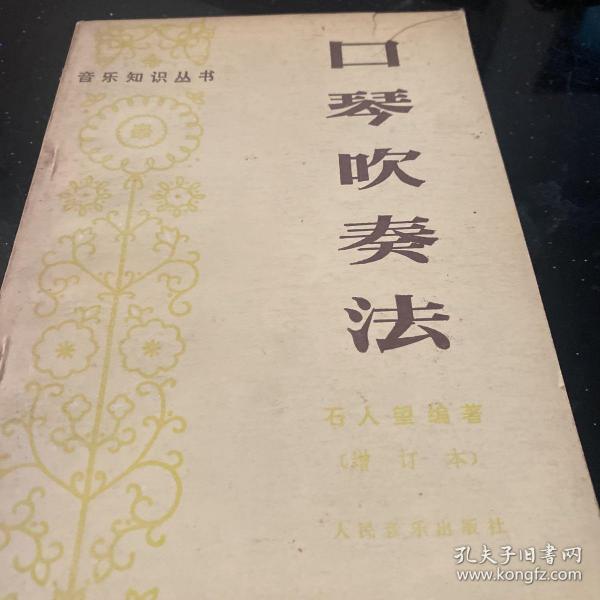 音乐知识丛书
口琴吹奏法
石人望编著
（增订本）
人民音乐出版社
孔夫子旧书网
www.kongfz.com